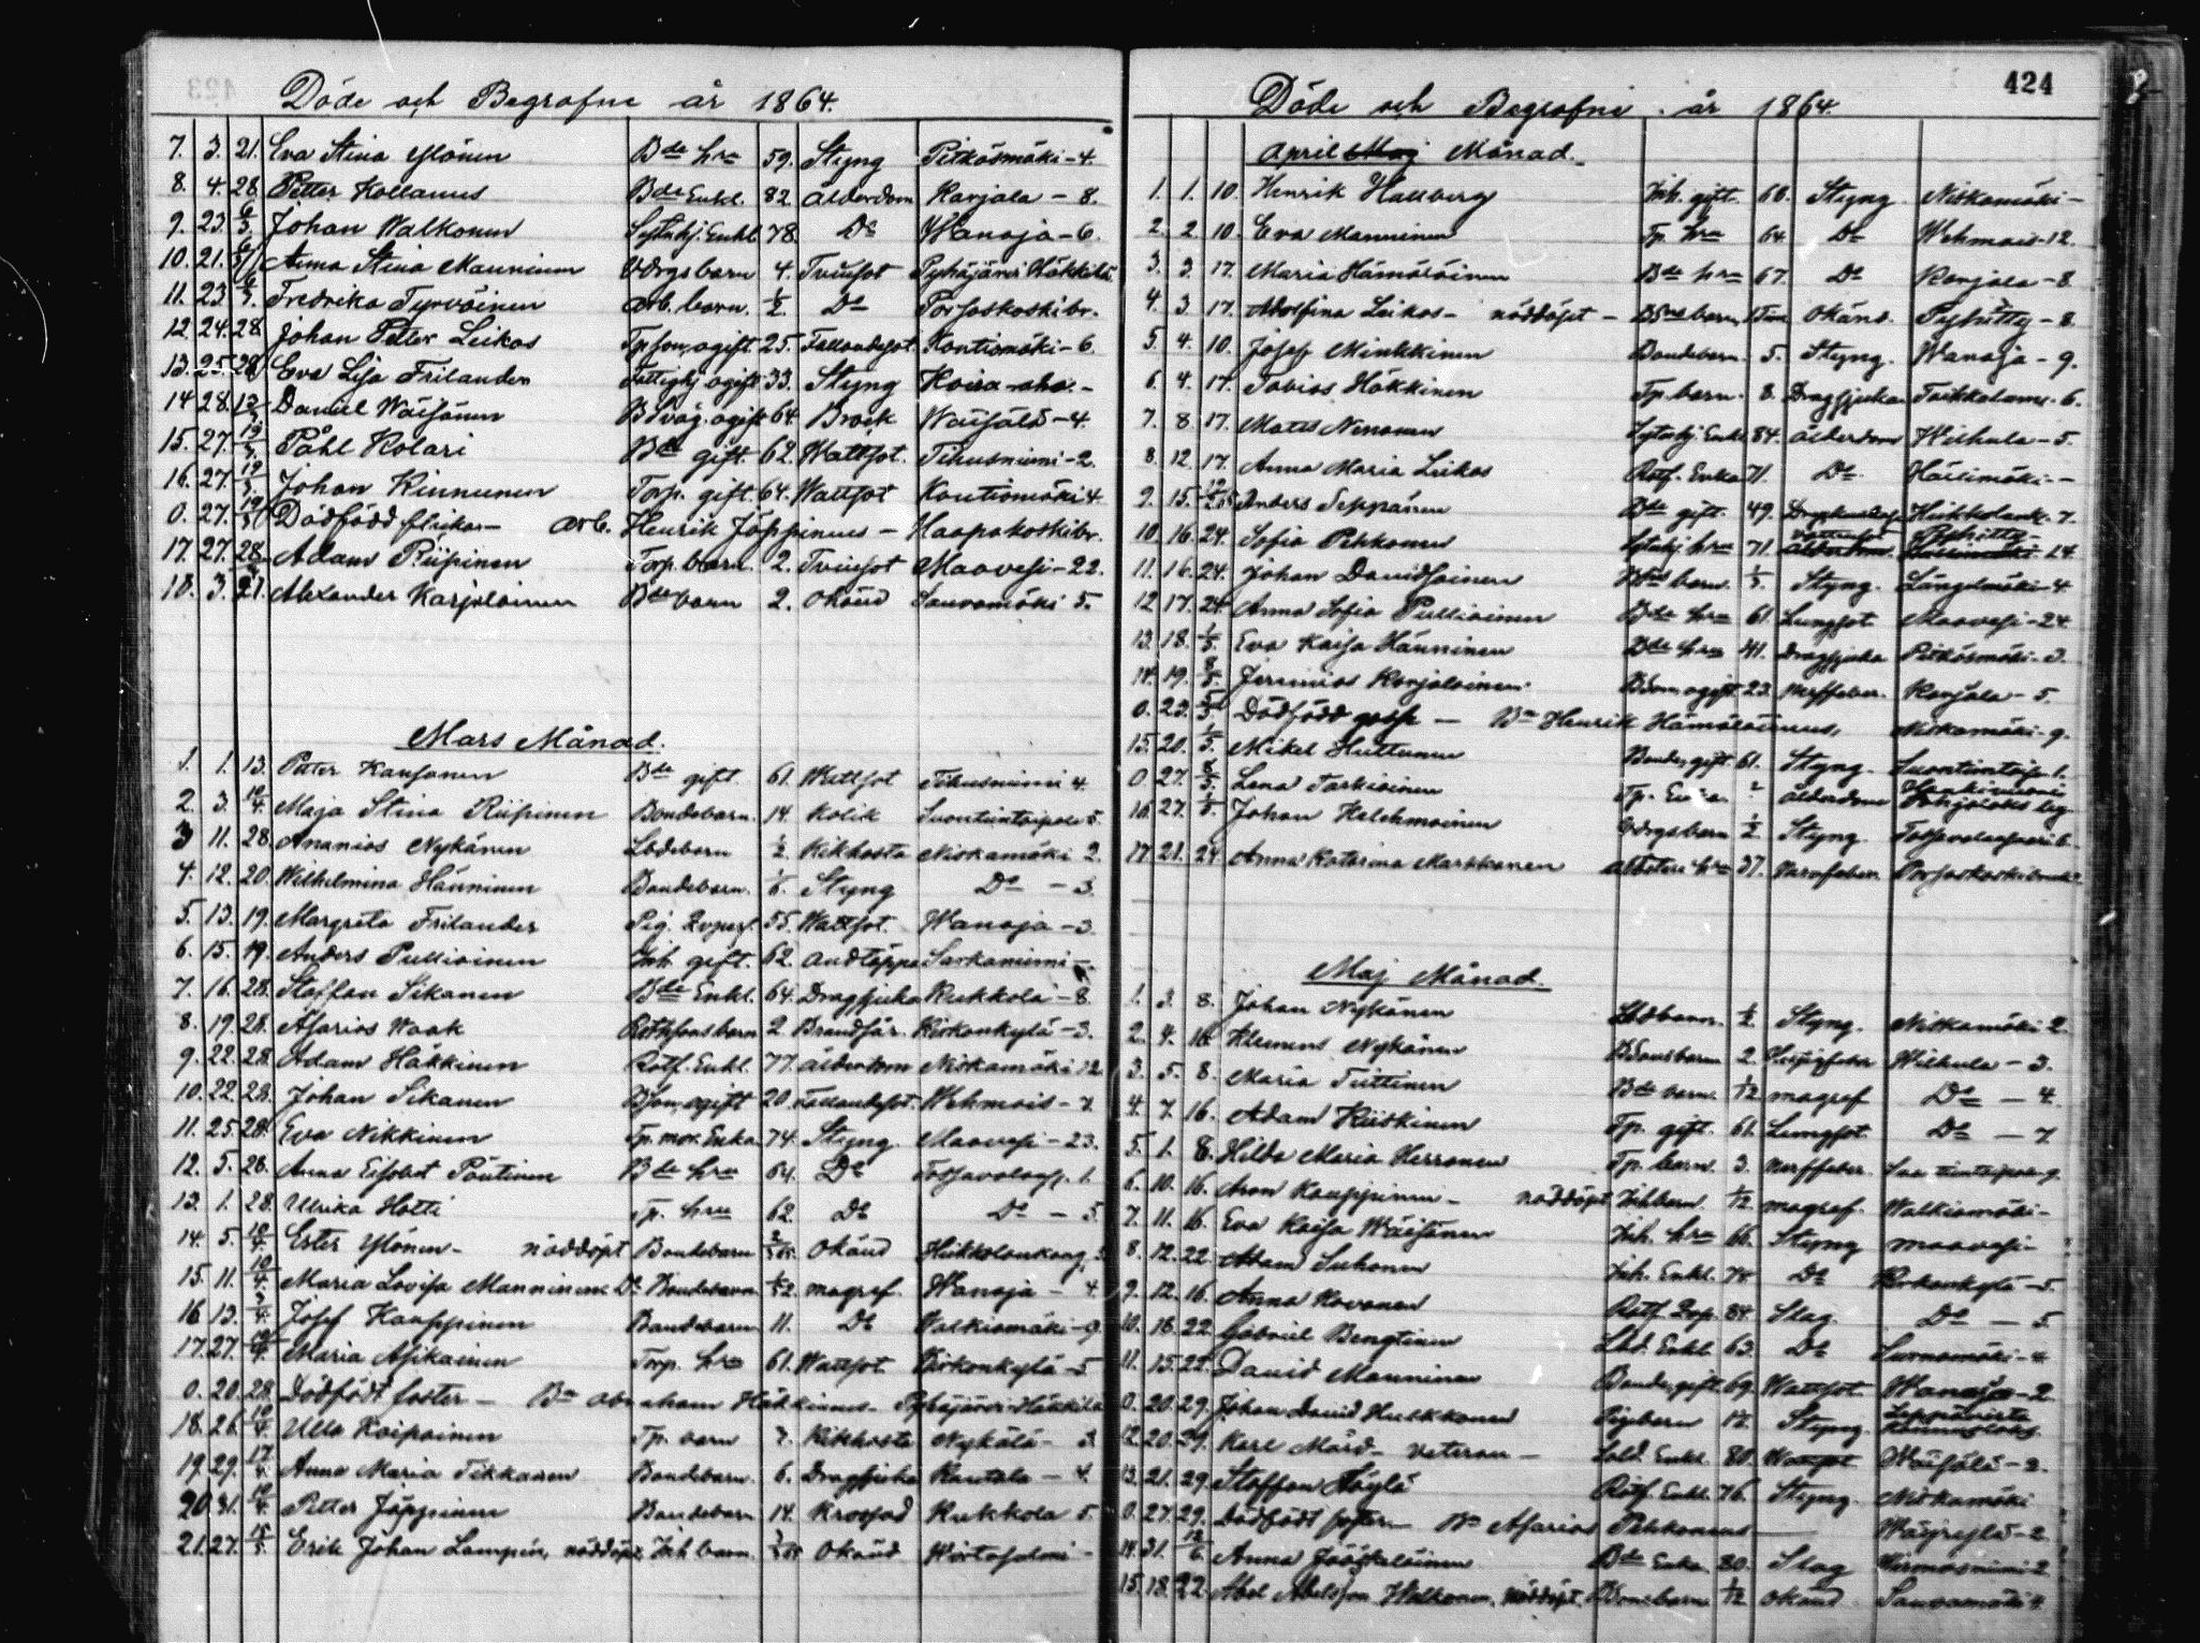 Döde och Begrafne år 1864.
7. 3. 21. Eva Stina Ylönen Bde hru 59. Styng Pitkäsmäki - 4.
8. 4. 28. Petter Kollanus Bde Enkl. 82. ålderdom Karjala - 8.
9. 23. 6/3. Johan Walkonen Sytnhj. Enkl 78. Do Wanaja - 6.
10. 21. Anna Stina Manninen 4. Tvinsot Pyhäjärvi Häkkilä
11. 23. 6/3. Fredrika Tyrväinen Arb. barn. 1/2. Do Porsaskoski br.
12. 24. 28. Johan Petter Leikas Tp. son, ogift. 25. Fallandesot. Kontiomäki - 6.
13. 25. 28. Eva Lisa Frilander Fattighj. ogift 33. Styng Koira-aho. -
14. 28. 13/3 Daniel Wäisänen ogift 64. Bråck Wäisälä - 4.
15. 27. 19/3. Påhl Kolari Bde gift. 62. Wattsot. Tihusniemi - 2.
16. 27. 19/3. Johan Kinnunen Torp. gift. 64. Wattsot Kontiomäki 4.
0. 27. 19/3 Dödfödd flicka - Arb. Henrik Jäppinens - Haapakoski br.
17. 27. 28. Adam Riipinen Torp. barn. 2. Tvinsot Maavesi - 22.
18. 3. 21. Alexander Karjalainen Bde barn 2. Okänd Sauvamäki 5.
Mars Månad.
1. 1. 13. Petter Kaufanen Bde gift. 61. Wattsot Tihusniemi 4.
2. 3. 10/4. Maja Stina Riipinen Bondebarn. 14. Kolik Suontientaipale 5.
3 11. 28. Ananias Nykänen Lbdebarn 1/2. Kikhosta Niskamäki 2.
4. 12. 20. Wilhelmina Hänninen Bondebarn. Styng Do - 3.
5. 13. 19. Margreta Frilander Pig. 55. Wattsot. Wanaja - 3.
6. 15. 19. Anders Pulliainen Inh. gift. 62. Andtäppa Sarkaniemi -
7. 16. 28. Staffan Sikanen Bde Enkl. 64. Dragsjuka Kukkola - 8.
8. 19. 28. Asarias Waak barn 2 Brandsår. Kirkonkylä - 3.
9. 22. 28. Adam Häkkinen Rotf. Enkl. 77. ålderdom Niskamäki 12.
10. 22. 28. Johan Sikanen Bson, ogift 20. Fallandesot. Wehmais - 7.
11. 25. 28. Eva Nikkinen Tp. mor. Enka 74. Styng. Maavesi - 23.
12. 5. 28. Anna Elsabet Pöntinen Bde hru 64. Do 1.
13. 1. 28. Ulrika Hotti Tp. hru 62. Do Do - 5.
14. 5. 10/4. Ester Ylönen - nöddöpt Bondebarn Okänd
15. 11. 10/4. Maria Lovisa Manninen Do Bondebarn magref. Wanaja - 4.
16 13. 3/4. Josef Kauppinen Bondebarn 11. Do Valkiamäki - 9.
17. 27. 10/4. Maria Asikainen Torp. hru 61. Wattsot Kirkonkylä - 5
0. 20. 28. Dödfödt foster - Bn Abraham Häkkinens - Pyhäjärvi Häkkilä
18. 26. 10/4. Ulla Kaipainen Tp. barn Kikhosta Nykälä - 3.
19. 29. 17/4. Anna Maria Tikkanen Bondebarn. 6. Dragsjuka Rantala - 4.
20. 31. 10/4. Petter Jäppinen Bondebarn 14. Kukkola 5.
21. 27. Erik Johan Lampin, nöddöpt, Inh. barn. Okänd Wirtasalmi -
424
Döde och Begrafne år 1864.
April Maj Månad.
1. 1. 10. Henrik Hallberg Inh. gift. 60. Styng Niskamäki -
2. 2. 10. Eva Manninen Tp. hru 64. Do Wehmais - 12.
3. 3. 17. Maria Hämäläinen Bde hru 67. Do Karjala - 8
4. 3. 17. Adolfina Leikas - nöddöpt - Okänd. Pyhitty - 8.
5. 4. 10. Josef Minkkinen Bondebarn. 5. Styng. Wanaja - 9.
6. 4. 17. Tobias Häkkinen Tp. barn. 8. Dragsjuka - 6.
7. 8. 17. Mats Nenonen Sytnhj. Enkl. 84. ålderdom Kiehula - 5.
8. 12. 17. Anna Maria Leikas Rotf. Enka 71. Do Häilimäki - -
9. 15. Anders Seppänen Bde gift. 49. - 7.
10. 16. 24. Sofia Pekkonen Sytnhj. hru 71. Wattusot Pyhitty - 14.
11. 16. 24. Johan Davidsainen barn. Styng. Längelmäki - 4.
12 17. 24. Anna Sofia Pulliainen Bde hru 61. Lungsot Maavesi - 24.
13. 18. 1/5. Eva Kaisa Hänninen Bde hru 41. Dragsjuka Pitkäsmäki - 3.
14. 19. 8/5. Jeremias Karjalainen Bson ogift. 23. Nerffeber. Karjala - 5.
0. 23. Dödfödd gosse - Bn Henrik Hämäläinens, Niskamäki - 9.
15. 20. 1/5. Mikel Huttunen Bonde, gift 61. Styng.
0 27. 8/5. Lena Tarkiainen Tp. Enka ? ålderdom
16. 27. Johan Kelehmainen 1/2 Styng.
17. 21. 24. Anna Katarina Markkanen hru 37. Nervfeber. Porsaskoski bruk
Maj Månad.
1. 3. 8. Johan Nykänen Lbdbarn. 1/2. Styng. Niskamäki 2.
2. 4. 16. Klemens Nykänen barn 2. Kiehula - 3.
3. 5. 8. Maria Tuittinen Bde barn. 1/12 magref Do - 4.
4. 7. 16. Adam Kiiskinen Tp. gift. 61. Lungsot. Do - 7.
5. 1. 8. Hilda Maria Herranen Tp. barn. 3. Nerffeber. Suontientaipale 9.
6. 10. 16. Aron Kauppinen - nöddöpt Inhbarn 1/12 magref. Walkiamäki -
7. 11. 16. Eva Kaisa Wäisänen Inh. hru 66. Styng Maavesi -
8. 12. 22. Adam Suhonen Inh. Enkl. Do Kirkonkylä - 5.
9. 12. 16. Anna Kovanen Rotf. 84. Slag. Do - 5.
10. 16. 22. Gabriel Bengtinen Lbd. Enkl 63. Do Surnamäki - 4.
11. 15. 22. David Manninen Bonde, gift 69. Wattsot Wanaja - 2.
0. 20. 29. Johan David Hulkkonen Pigebarn Styng. Leppävirta
12. 20. 29. Karl Mård - veteran - Enkl. 80. Wattsot Wäisälä - 2.
13. 21. 29. Staffan Höylä Rotf. Enkl. 76. Styng. Niskamäki
0. 27. 29. Dödfödt foster - Bn Asarias Pekkonens - 2.
14. 31. 12/6. Anna Jääskeläinen Bde Enka 80. Slag 2
15. 18. 22. Abel Abelsson Walkonen, nöddöpt 1/12 okänd Sauvamäki 4.